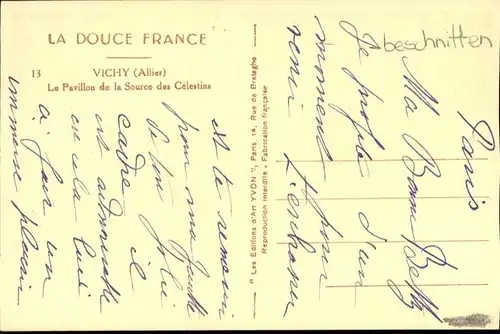 LA DOUCE FRANCE
13 VICHY (Allier)
Le Pavillon de la Source des Célestins
"Les Editions d'Art YVON", Paris 14, Rue de Bretagne
Reproduction interdite - Fabrication française
beschnitten
Paris
Ma Bonne Betty
Je profite d'un
moment pour
venir
et te remercie
pour ma
de ton jolie
cadre il
est admirable
et cela lui
a fait un
immense plaisir